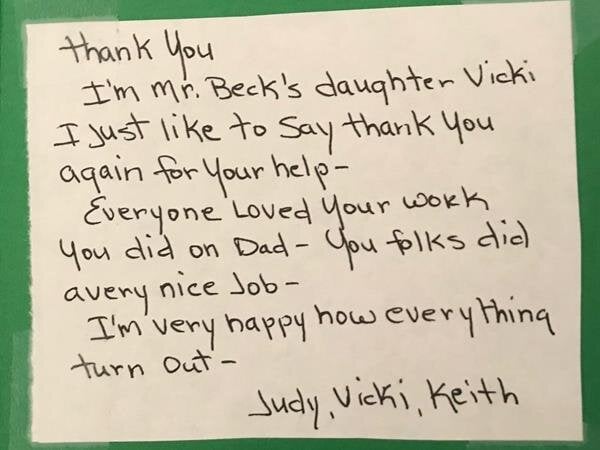 thank You
I'm Mr. Beck's daughter Vicki
I Just like to Say thank You
again for Your help-
Everyone Loved Your work
You did on Dad- You folks did
avery nice Job-
I'm very happy how everything
turn out-
Judy, Vicki, Keith